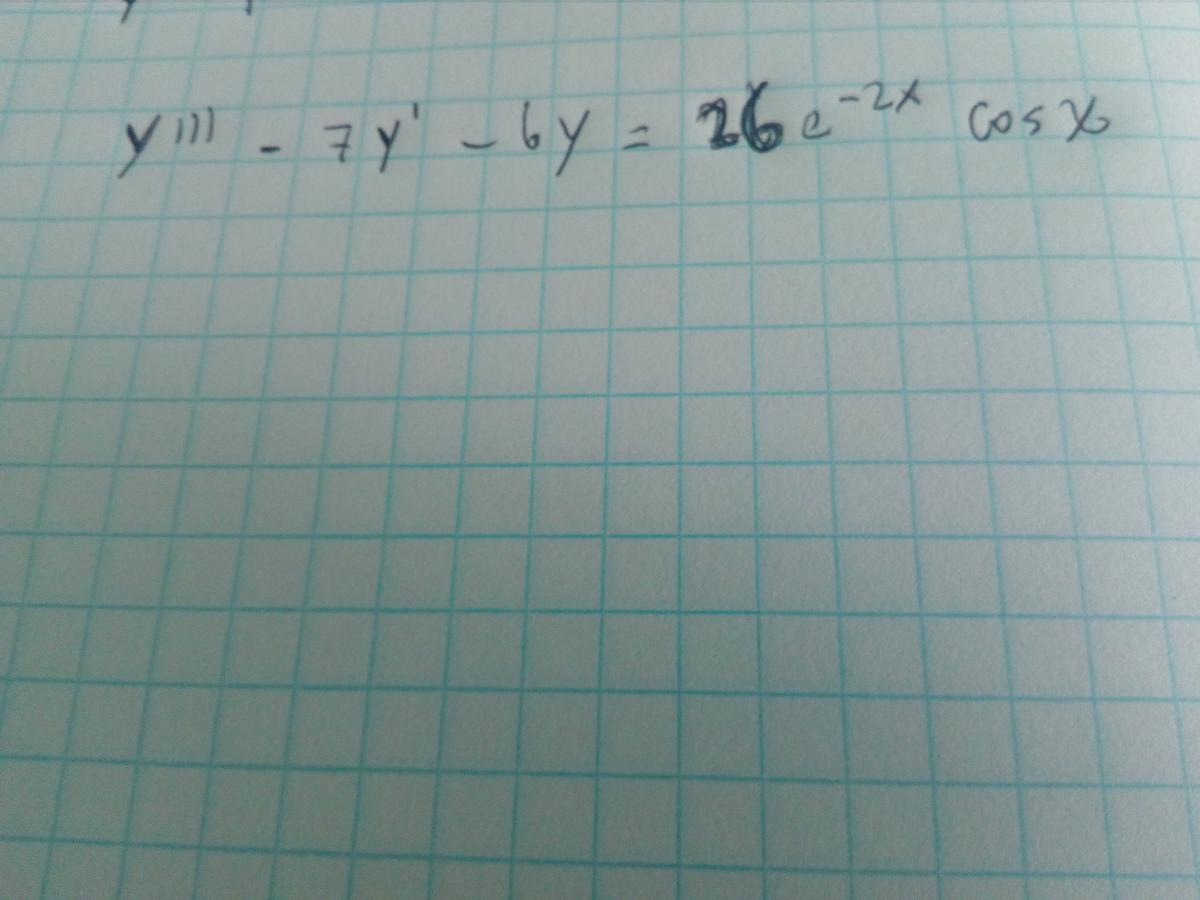 y''' - 7y' - 6y = 26e^{-2x} cos x